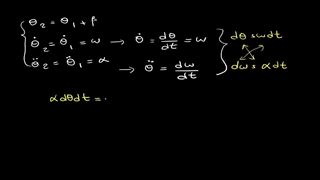 θ₂ = θ₁ + β
θ̇₂ = θ̇₁ = ω → θ̇ = dθ/dt = ω
θ̈₂ = θ̈₁ = α → θ̈ = dω/dt
dθ = ωdt
dω = αdt
αdθdt =